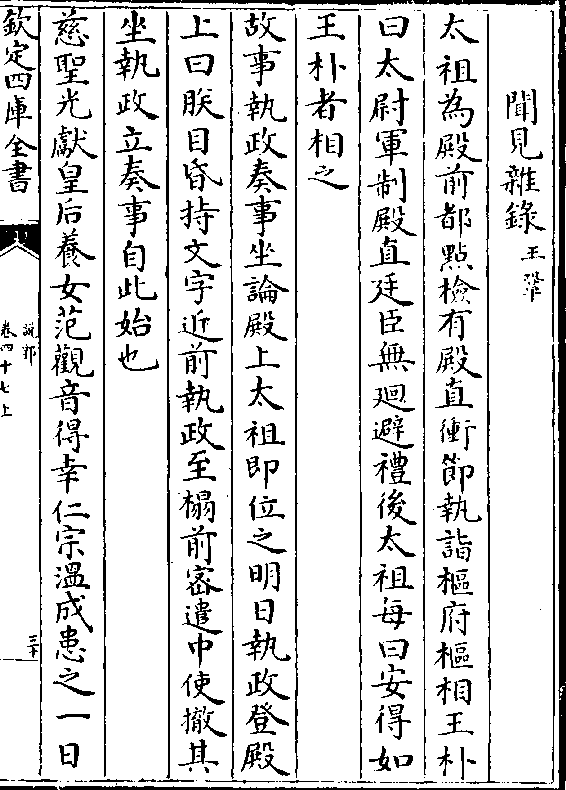 聞見雜錄 王鞏
太祖為殿前都㸃檢有殿直衝節執詣樞府樞相王朴
曰太尉軍制殿直廷臣無廻避禮後太祖每曰安得如
王朴者相之
故事執政奏事坐論殿上太祖即位之明日執政登殿
上曰朕目昏持文字近前執政至榻前密遣中使撤其
坐執政立奏事自此始也
慈聖光獻皇后養女范觀音得幸仁宗溫成患之一日
欽定四庫全書
說郛
卷四十七上
三十